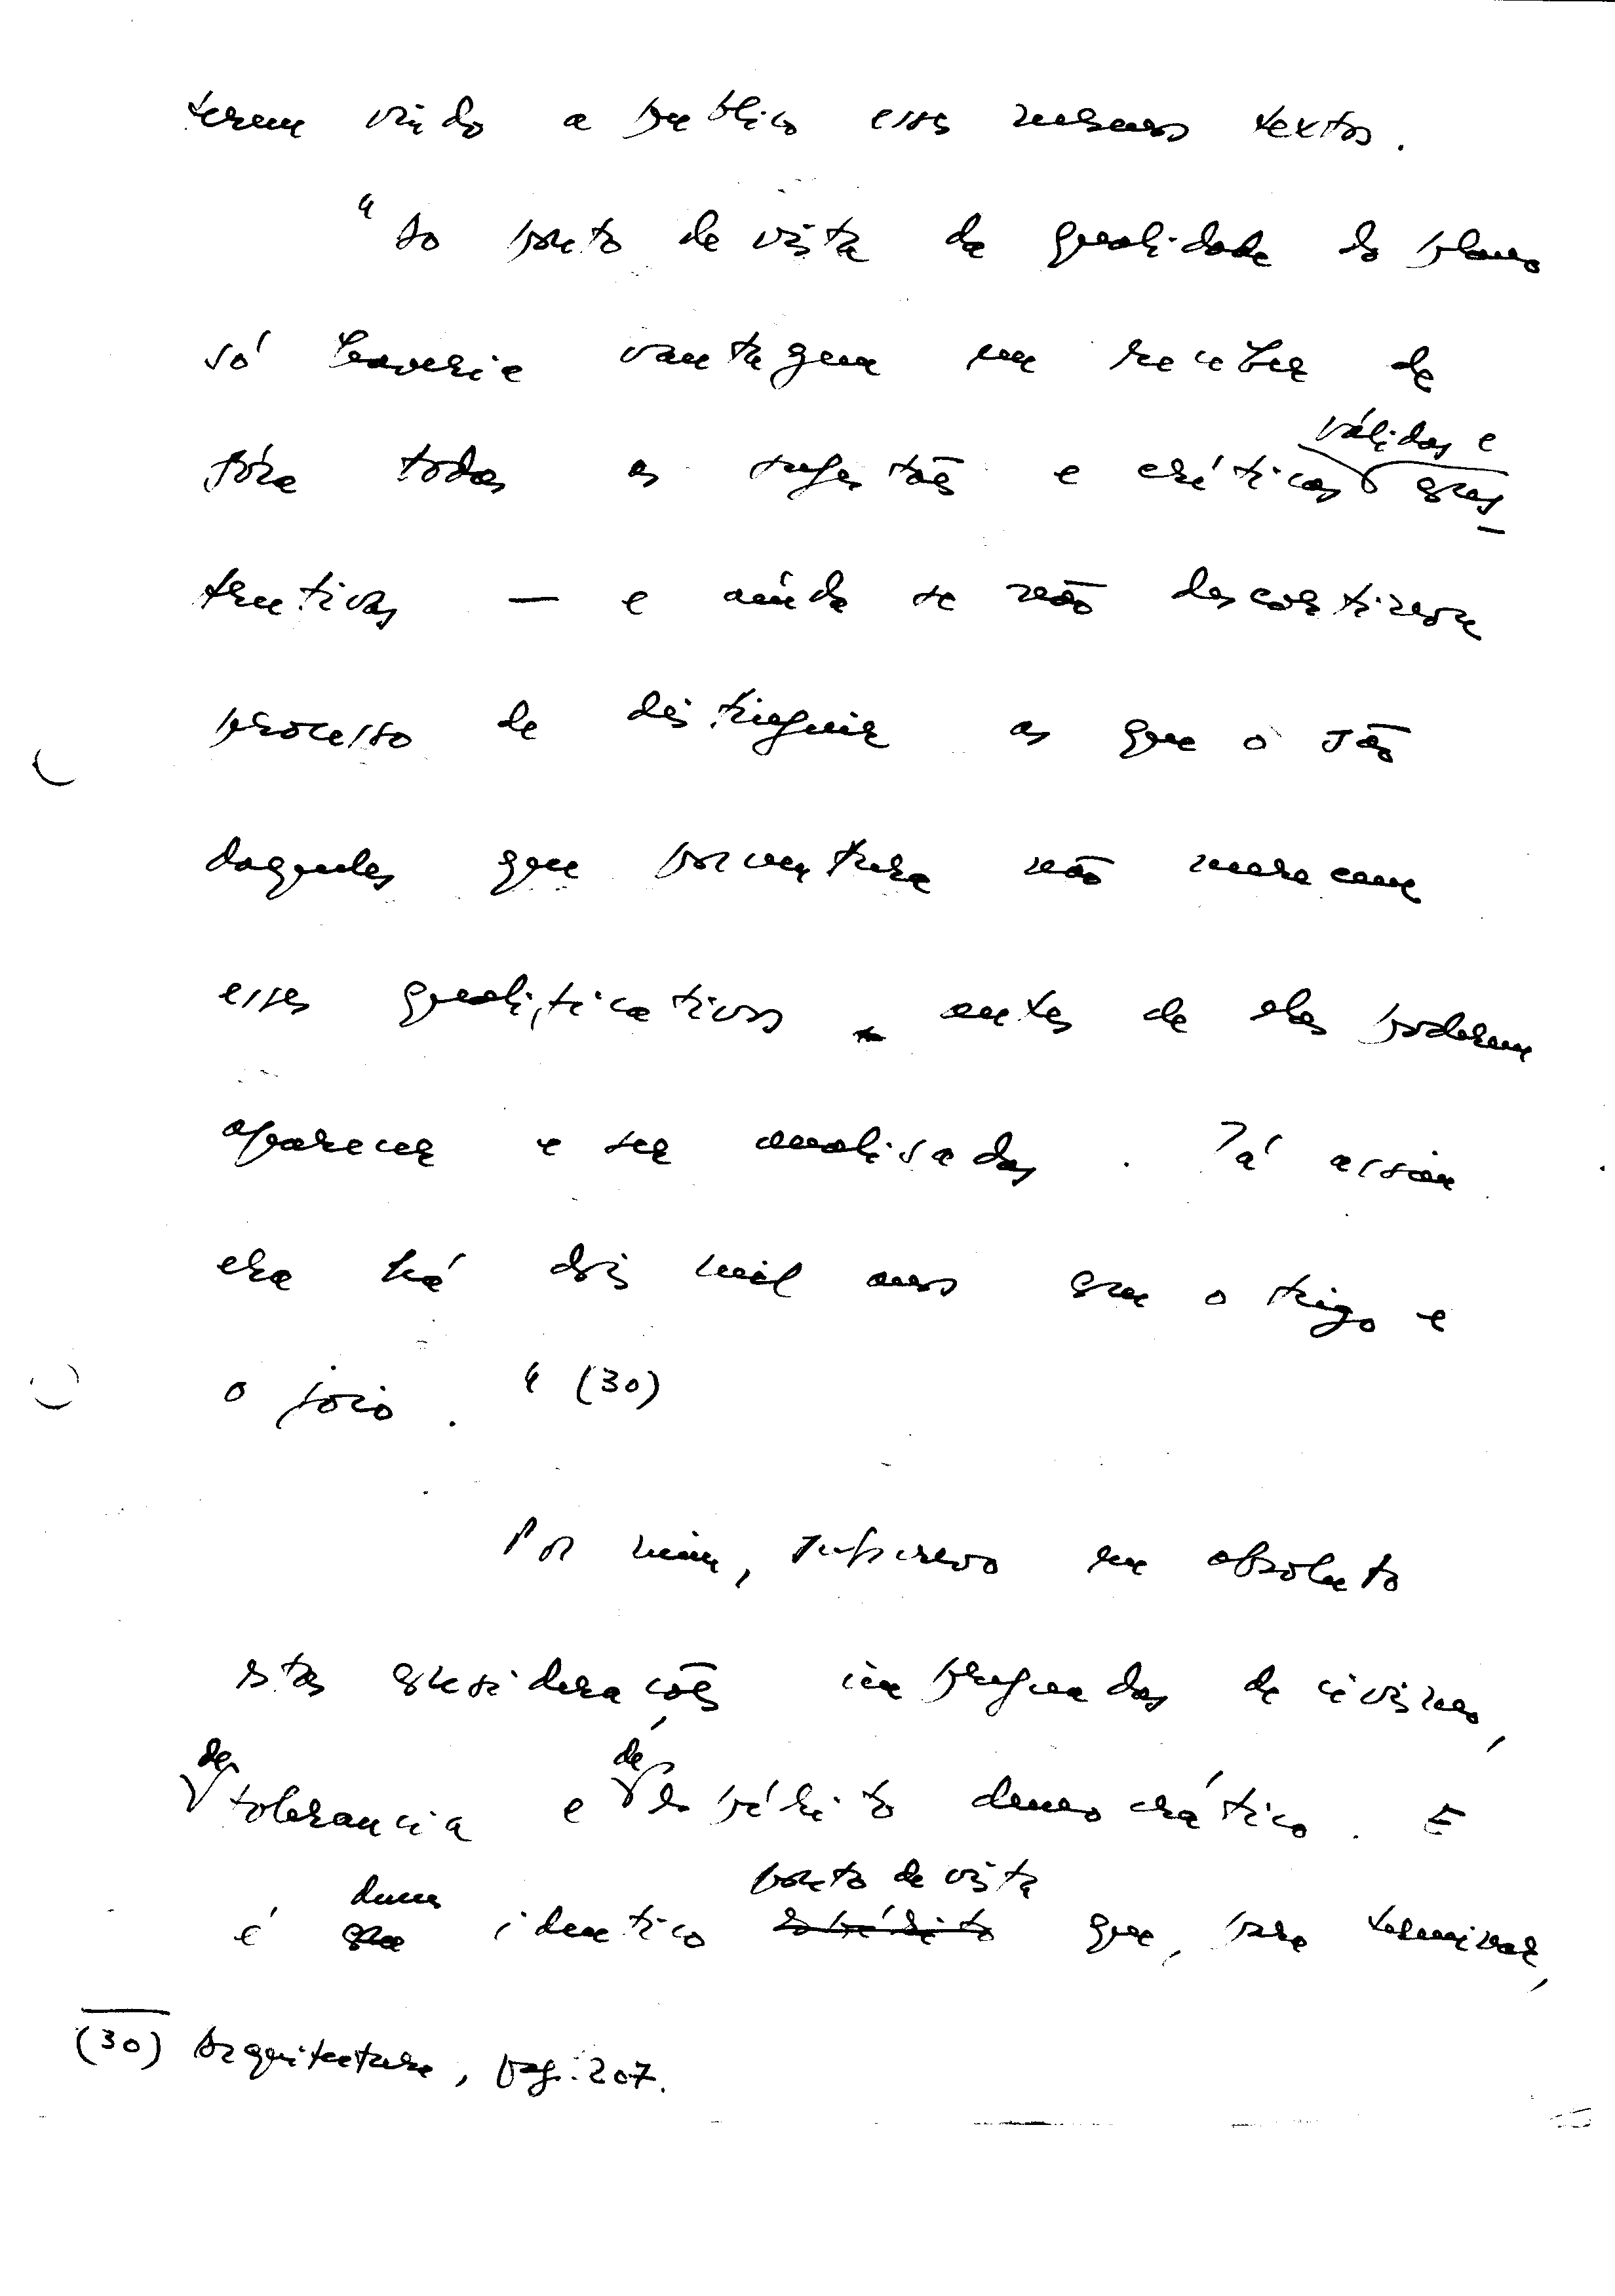 terem vindo a publico esses mesmos textos.
"Ao ponto de vista da qualidade do plano
só haveria vantagem em receber de
fóra todas as sugestões e críticas válidas e cons-
trutivas — e ainda se não descortinou
processo de distinguir as que o são
daquelas que porventura não merecem
esses qualificativos antes de elas poderem
aparecer e ser analisadas. Já assim
era há dois mil anos com o trigo e
o joio." (30)
Por mim, subscrevo em absoluto
estas considerações, impregnadas de civismo,
de tolerancia e de espírito democrático. E
é dum identico ponto de vista que, para terminar,
(30) Arquitectura, pag. 207.